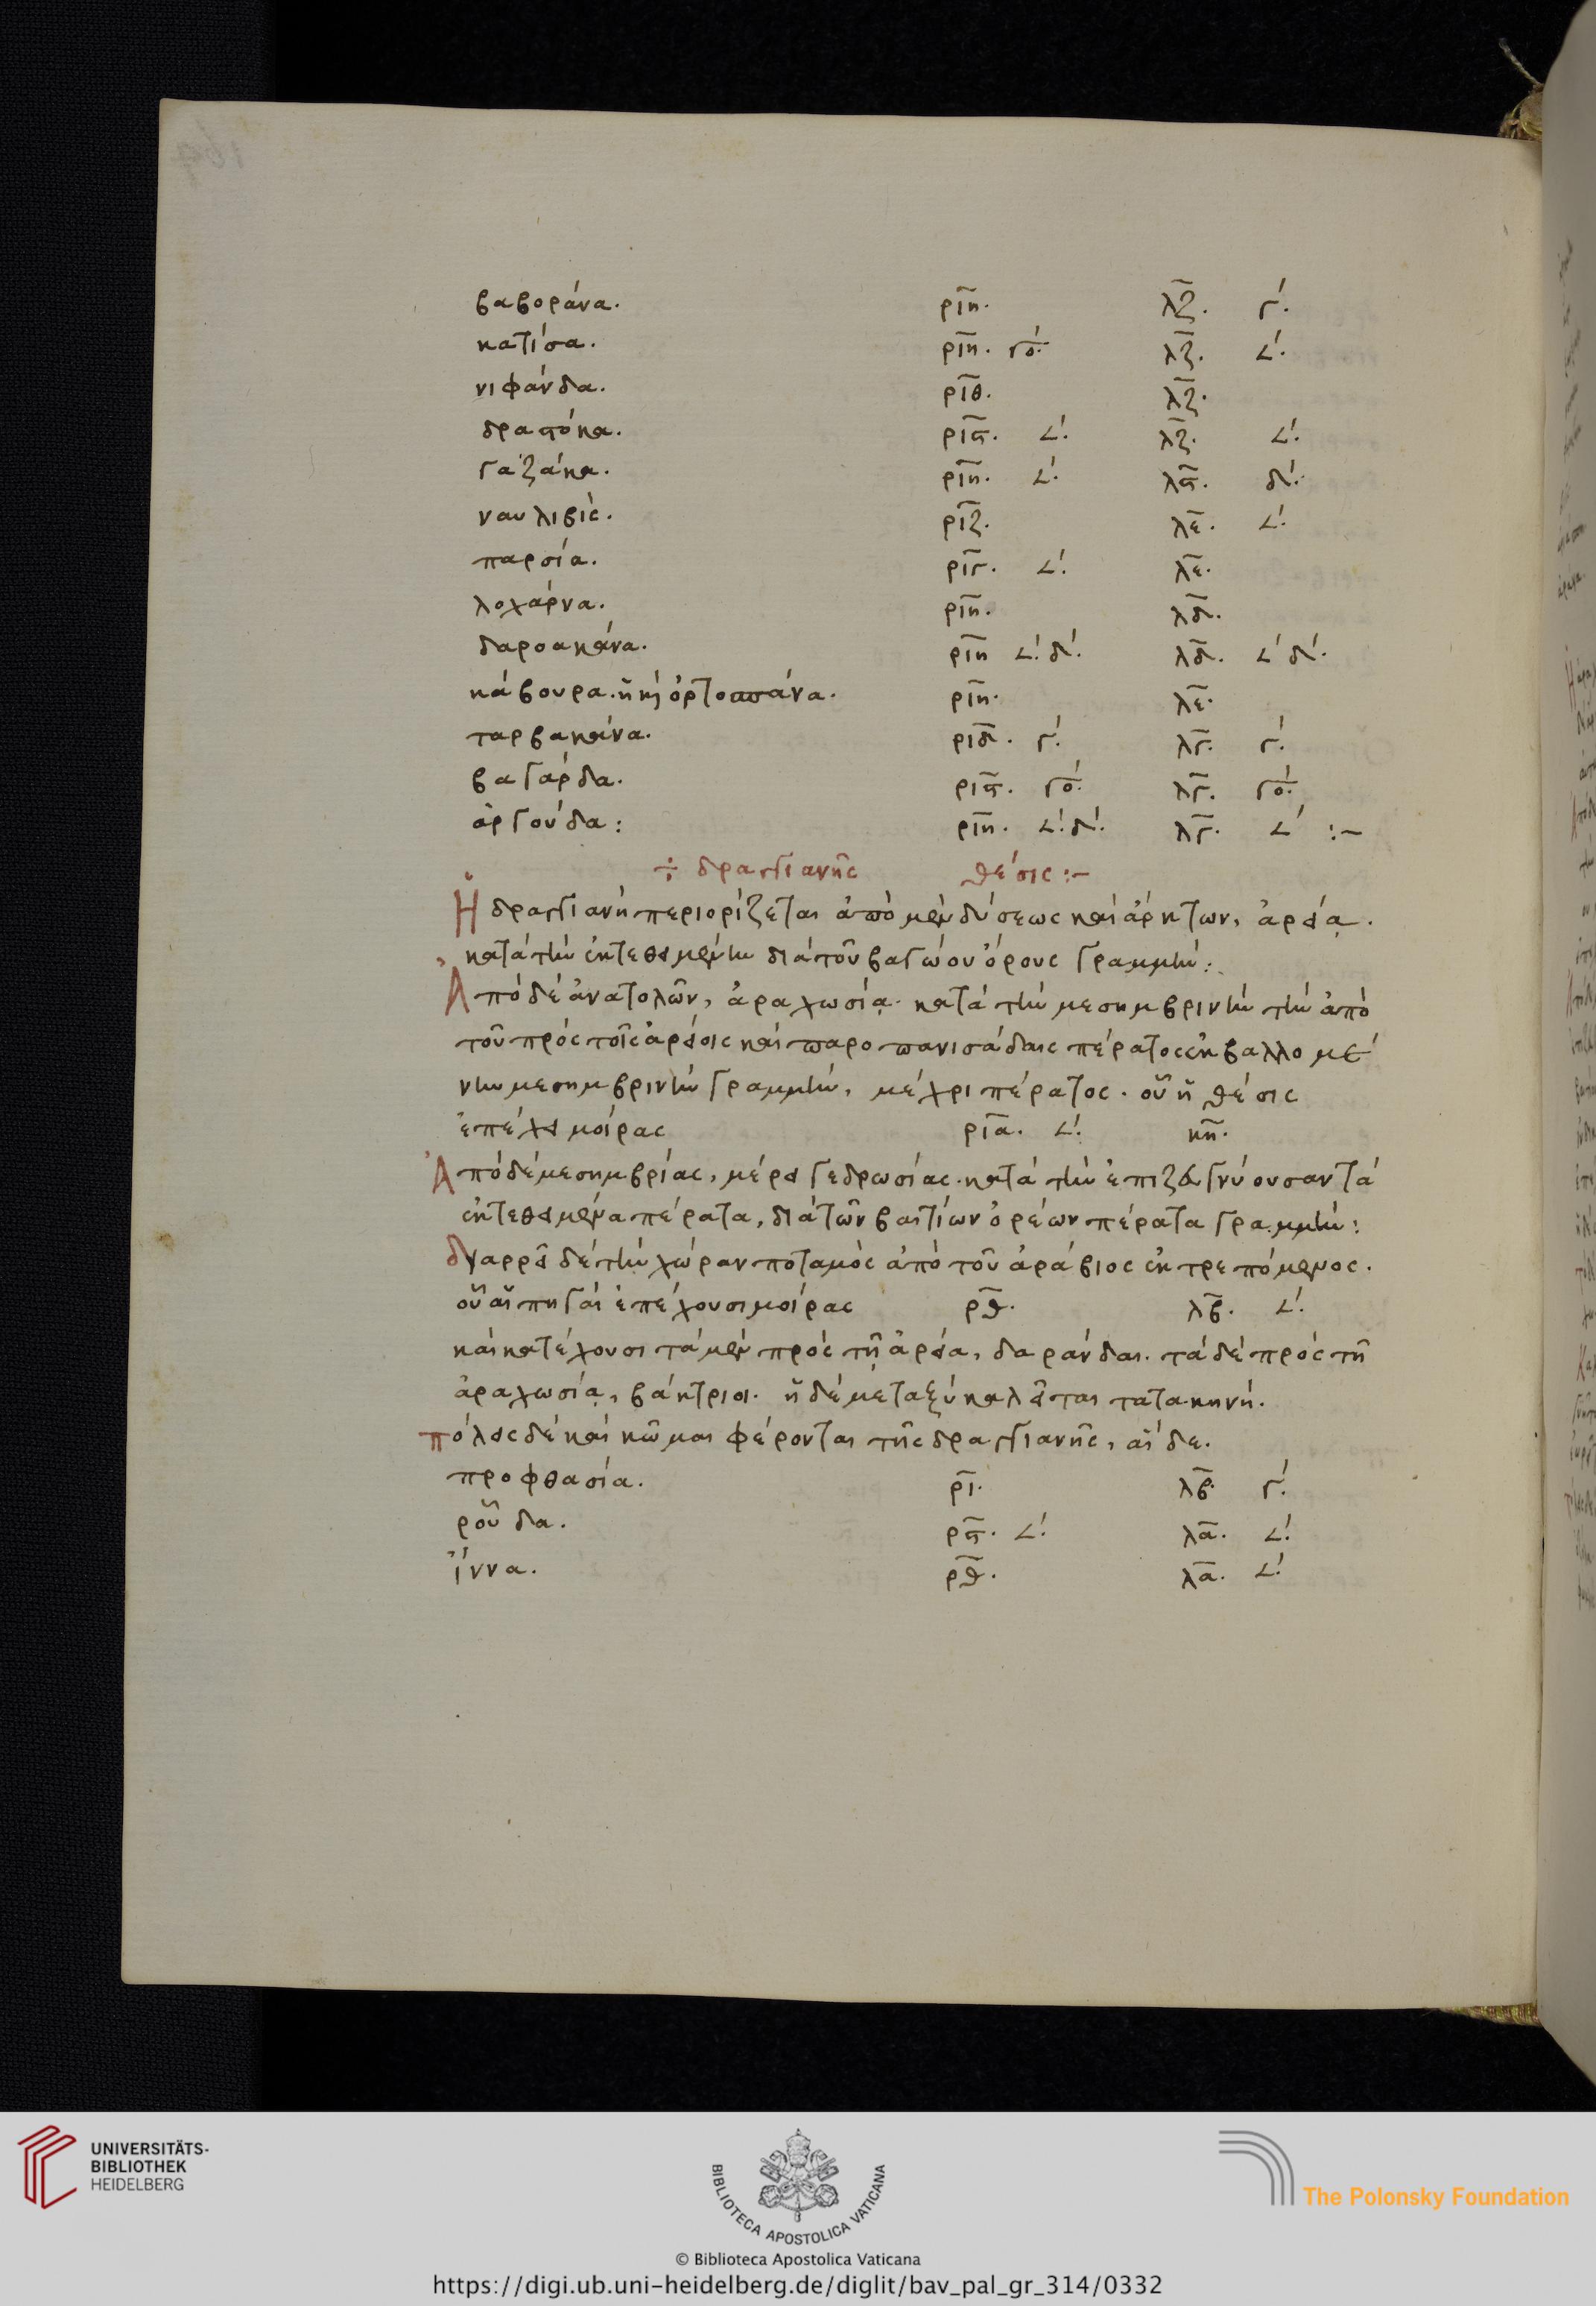 βαβοράνα. ριη. λζ. γʹ.
κατίσα. ριη. γοʹ. λζ. 𐅵ʹ.
νιφάνδα. ριθ. λζ.
δραστόκα. ριϛ. 𐅵ʹ. λζ. 𐅵ʹ.
γαζάκα. ριη. 𐅵ʹ. λϛ. δʹ.
ναυλιβίς. ριζ. λε. 𐅵ʹ.
παρσία. ριγ. 𐅵ʹ. λε.
λοχάρνα. ριη. λδ.
δαροακάνα. ριη 𐅵ʹ. δʹ. λδ. 𐅵ʹ δʹ.
κάβουρα. ἢ κὶ ὀρτοσπάνα. ριη. λε.
ταρβακάνα. ριδ. γʹ. λγ. γʹ.
βαγάρδα. ριϛ. γοʹ. λγ. γοʹ.
ἀργούδα: ριη. 𐅵ʹ. δʹ. λγ. 𐅵ʹ :-
÷ δραγγιανῆς θέσις :-
Ἡ δραγγιανὴ περιορίζεται ἀπὸ μὲν δύσεως καὶ ἄρκτων, ἀρεία.
κατὰ τὴν ἐκτεθειμένην διὰ τοῦ βαγώου ὄρους γραμμήν:
Ἀπὸ δὲ ἀνατολῶν, ἀραχωσία. κατὰ τὴν μεσημβρινὴν τὴν ἀπὸ
τοῦ πρὸς τοῖς ἀρείοις καὶ παροπανισάδαις πέρατος ἐκβαλλομέ
νην μεσημβρινὴν γραμμήν, μέχρι πέρατος. οὗ ἡ θέσις
ἐπέχει μοίρας ρια. 𐅵ʹ. κη.
Ἀπὸ δὲ μεσημβρίας, μέρει γεδρωσίας. κατὰ τὴν ἐπιζευγνύουσαν τὰ
ἐκτεθειμένα πέρατα, διὰ τῶν βαιτίων ὀρέων πέρατα γραμμήν:
διαρρεῖ δὲ τὴν χώραν ποταμὸς ἀπὸ τοῦ ἀράβιος ἐκτρεπόμενος.
οὗ αἱ πηγαὶ ἐπέχουσι μοίρας ρθ. λβ. 𐅵ʹ.
καὶ κατέχουσι τὰ μὲν πρὸς τῇ ἀρεία, δαράνδαι. τὰ δὲ πρὸς τῇ
ἀραχωσίᾳ, βάκτριοι. ἡ δὲ μεταξὺ καλεῖται τατακηνή.
πόλεις δὲ καὶ κῶμαι φέρονται τῆς δραγγιανῆς, αἵδε.
προφθασία. ρι. λβ. γʹ.
ροῦδα. ρϛ. 𐅵ʹ. λα. 𐅵ʹ.
ἵννα. ρθ. λα. 𐅵ʹ.
UNIVERSITÄTS-
BIBLIOTHEK
HEIDELBERG
BIBLIOTECA APOSTOLICA VATICANA
The Polonsky Foundation
© Biblioteca Apostolica Vaticana
https://digi.ub.uni-heidelberg.de/diglit/bav_pal_gr_314/0332